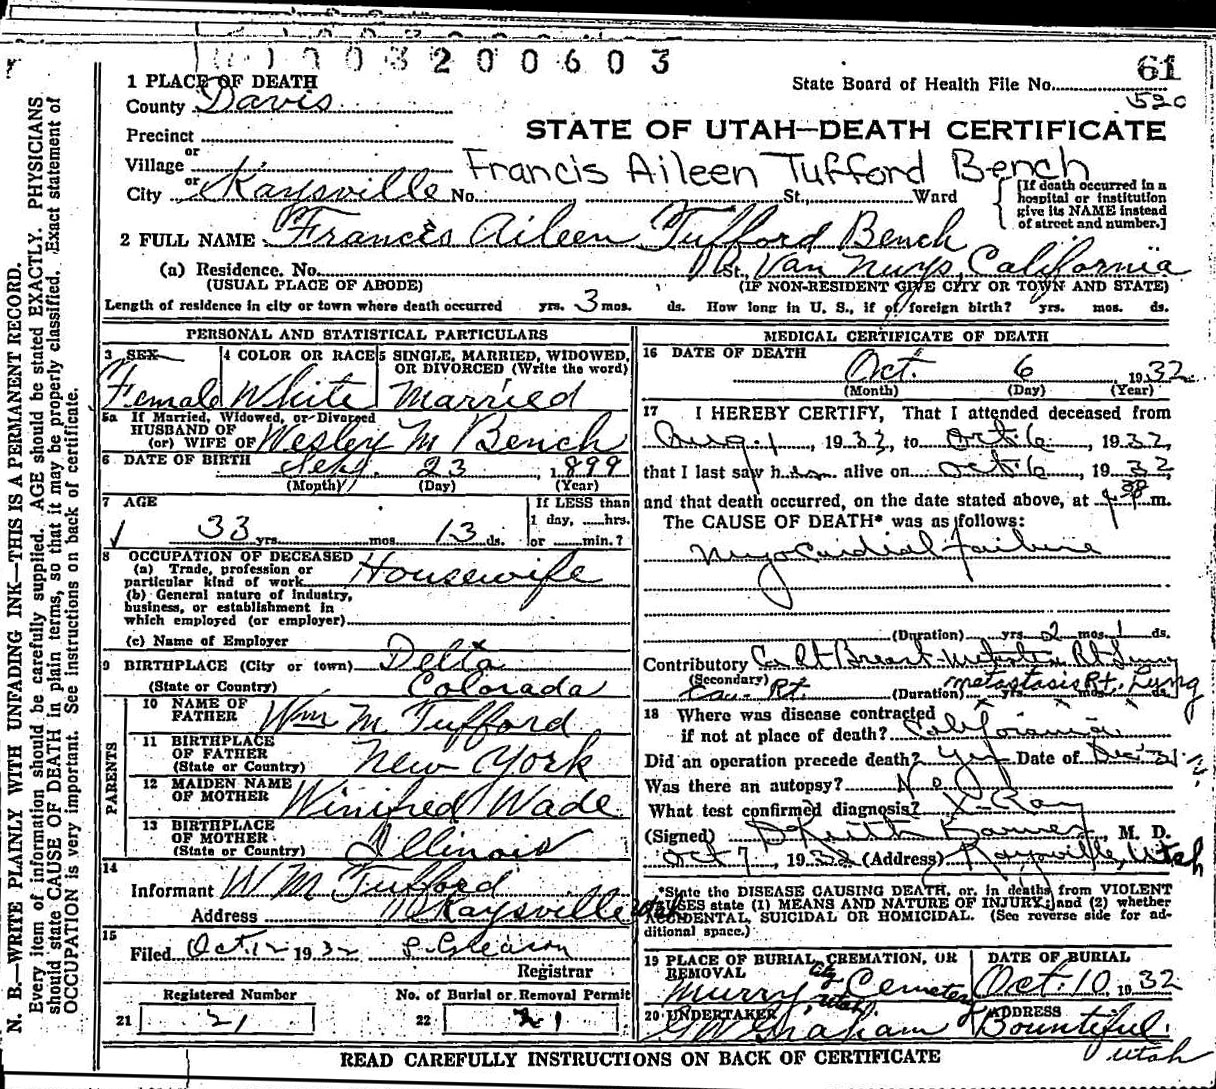 1003200603
61
1 PLACE OF DEATH
State Board of Health File No.
520
County Davis
Precinct
STATE OF UTAH—DEATH CERTIFICATE
or
Village
Francis Aileen Tufford Bench
or
City Kaysville No. St., Ward
[If death occurred in a
hospital or institution
give its NAME instead
of street and number.]
2 FULL NAME Francis Aileen Tufford Bench
(a) Residence. No. St. Van Nuys, California
(USUAL PLACE OF ABODE) (IF NON-RESIDENT GIVE CITY OR TOWN AND STATE)
Length of residence in city or town where death occurred yrs. 3 mos. ds. How long in U. S., if of foreign birth? yrs. mos. ds.
PERSONAL AND STATISTICAL PARTICULARS
3 SEX
Female
4 COLOR OR RACE
White
5 SINGLE, MARRIED, WIDOWED,
OR DIVORCED (Write the word)
Married
5a If Married, Widowed, or Divorced
HUSBAND OF
(or) WIFE OF Wesley M Bench
6 DATE OF BIRTH Sept. 23 1899
(Month) (Day) (Year)
7 AGE
33 yrs. mos. 13 ds.
If LESS than
1 day, hrs.
or min.?
8 OCCUPATION OF DECEASED
(a) Trade, profession or
particular kind of work Housewife
(b) General nature of industry,
business, or establishment in
which employed (or employer)
(c) Name of Employer
9 BIRTHPLACE (City or town) Delta
(State or Country) Colorada
PARENTS
10 NAME OF
FATHER Wm M Tufford
11 BIRTHPLACE
OF FATHER
(State or Country) New York
12 MAIDEN NAME
OF MOTHER Winifred Wade
13 BIRTHPLACE
OF MOTHER
(State or Country) Illinois
14
Informant W M Tufford
Address Kaysville Utah
15
Filed Oct. 12 1932 S. Gleason
Registrar
Registered Number
21 21
No. of Burial or Removal Permit
22 21
MEDICAL CERTIFICATE OF DEATH
16 DATE OF DEATH
Oct. 6 1932
(Month) (Day) (Year)
17 I HEREBY CERTIFY, That I attended deceased from
Aug. 1, 1932, to Oct. 6, 1932,
that I last saw h alive on Oct. 6, 1932
and that death occurred, on the date stated above, at m.
The CAUSE OF DEATH* was as follows:
Myocardial failure
(Duration) yrs. 2 mos. 1 ds.
Contributory Ca Rt Breast Rt Lung
(Secondary) metastasis Rt. Lung
(Duration) yrs. mos. ds.
18 Where was disease contracted
if not at place of death? California
Did an operation precede death? Yes Date of Dec. 31
Was there an autopsy? No
What test confirmed diagnosis? X-Ray
(Signed) D Keith Barnes, M. D.
Oct 7, 1932 (Address) Kaysville, Utah
*State the DISEASE CAUSING DEATH, or, in deaths from VIOLENT
CAUSES state (1) MEANS AND NATURE OF INJURY; and (2) whether
ACCIDENTAL, SUICIDAL OR HOMICIDAL. (See reverse side for ad-
ditional space.)
19 PLACE OF BURIAL, CREMATION, OR
REMOVAL
Murry City Cemetery
Utah.
DATE OF BURIAL
Oct. 10, 1932
20 UNDERTAKER
G W Graham
ADDRESS
Bountiful.
Utah
READ CAREFULLY INSTRUCTIONS ON BACK OF CERTIFICATE
N. B.—WRITE PLAINLY WITH UNFADING INK—THIS IS A PERMANENT RECORD.
Every item of information should be carefully supplied. AGE should be stated EXACTLY. PHYSICIANS
should state CAUSE OF DEATH in plain terms, so that it may be properly classified. Exact statement of
OCCUPATION is very important. See instructions on back of certificate.